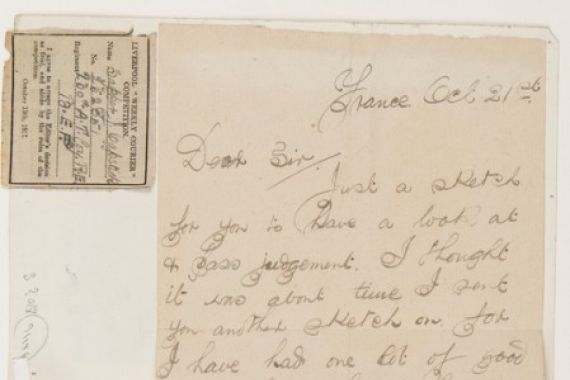 LIVERPOOL "WEEKLY COURIER"
COMPETITION.
Name
No.
Regiment
B.E.F.
I agree to accept the Editor's decision
as final, and abide by the rules of the
competition.
October 13th, 1917.
France Oct 21st
Dear Sir
Just a sketch
for you to have a look at
& pass judgement. I thought
it was about time I sent
you another sketch on for
I have had one bit of good